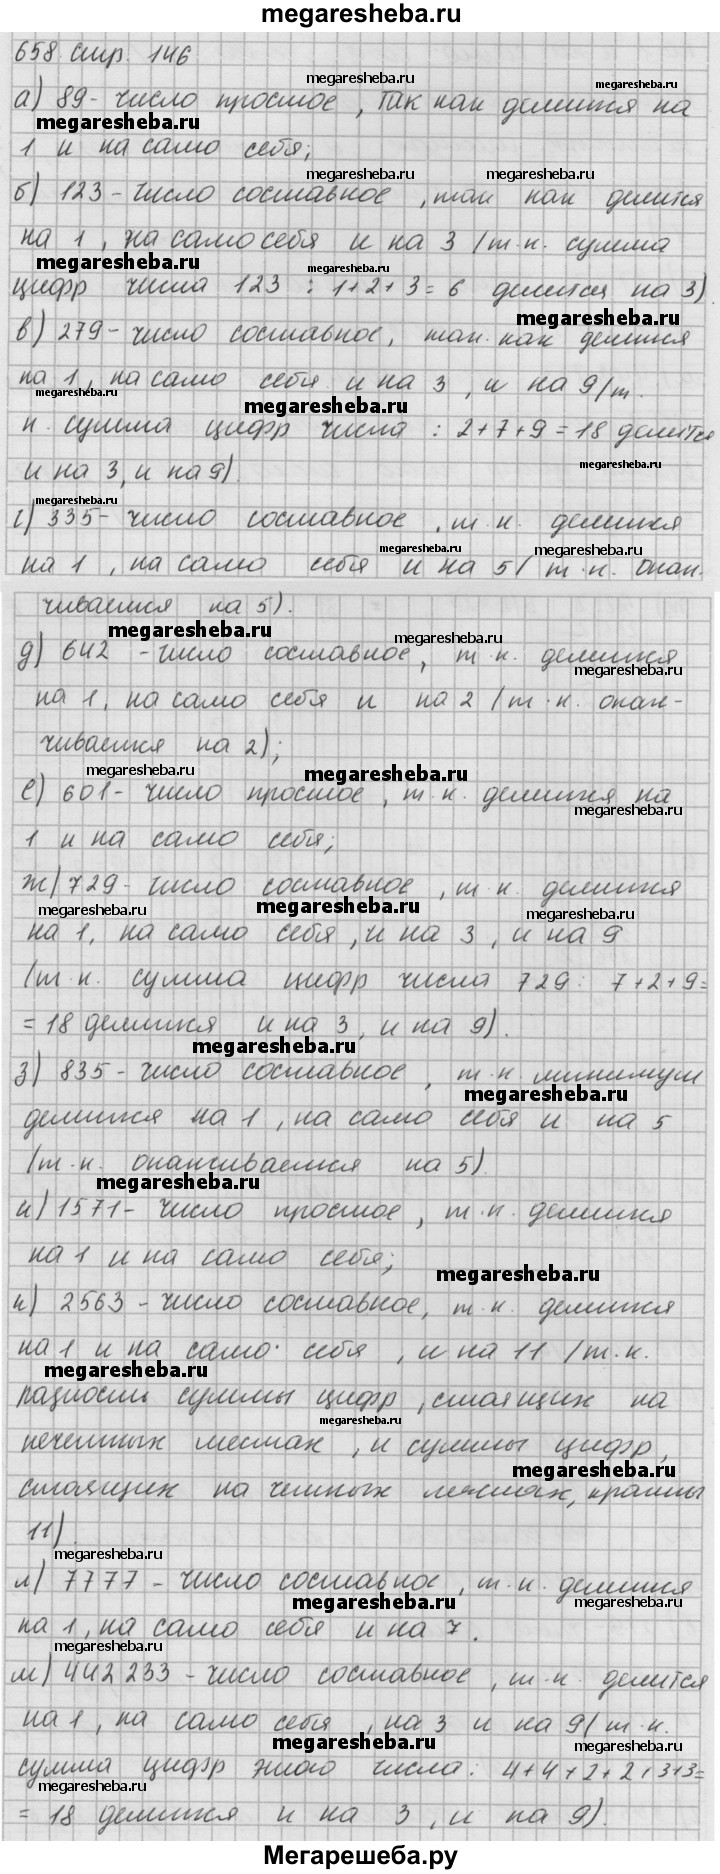 megaresheba.ru
658 стр. 146
megaresheba.ru
megaresheba.ru
а) 89 - число простое, так как делится на
megaresheba.ru
1 и на само себя;
megaresheba.ru
megaresheba.ru
б) 123 - число составное, так как делится
на 1, на само себя и на 3 /т.к. сумма
megaresheba.ru
megaresheba.ru
цифр числа 123 : 1+2+3=6 делится на 3).
megaresheba.ru
в) 279 - число составное, так как делится
на 1, на само себя и на 3, и на 9/т.
megaresheba.ru
megaresheba.ru
к. сумма цифр числа : 2+7+9=18 делится
megaresheba.ru
и на 3, и на 9).
megaresheba.ru
г) 335 - число составное, т.к. делится
megaresheba.ru
megaresheba.ru
на 1, на само себя и на 5/ т.к. окан-
чивается на 5).
megaresheba.ru
megaresheba.ru
д) 642 - число составное, т.к. делится
megaresheba.ru
на 1, на само себя и на 2 /т.к. окан-
чивается на 2);
megaresheba.ru
megaresheba.ru
е) 601 - число простое, т.к. делится на
megaresheba.ru
1 и на само себя;
ж) 729 - число составное, т.к. делится
megaresheba.ru
megaresheba.ru
megaresheba.ru
на 1, на само себя, и на 3, и на 9
/т.к. сумма цифр числа 729: 7+2+9=
=18 делится и на 3, и на 9).
megaresheba.ru
з) 835 - число составное, т.к. минимум
megaresheba.ru
делится на 1, на само себя и на 5
/т.к. оканчивается на 5).
megaresheba.ru
и) 1571 - число простое, т.к. делится
на 1 и на само себя;
megaresheba.ru
к) 2563 - число составное, т.к. делится
на 1 и на само себя, и на 11 /т.к.
megaresheba.ru
разности суммы цифр, стоящих на
megaresheba.ru
нечетных местах, и суммы цифр,
megaresheba.ru
стоящих на четных местах, кратны
11).
megaresheba.ru
л) 7777 - число составное, т.к. делится
megaresheba.ru
megaresheba.ru
на 1, на само себя и на 7.
megaresheba.ru
м) 442 233 - число составное, т.к. делится
megaresheba.ru
на 1, на само себя, на 3 и на 9/т.к.
megaresheba.ru
сумма цифр этого числа: 4+4+2+2+3+3=
megaresheba.ru
megaresheba.ru
=18 делится и на 3, и на 9).
Мегарешеба.ру